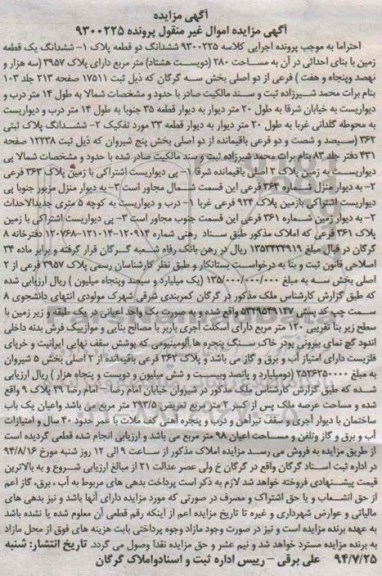 آگهی مزایده
آگهی مزایده اموال غیر منقول پرونده ۹۳۰۰۲۲۵
احتراما به موجب پرونده اجرایی کلاسه ۹۳۰۰۲۲۵ ششدانگ دو قطعه پلاک ۱- ششدانگ یک قطعه
زمین با بنای احداثی در آن به مساحت ۲۸۰ (دویست هشتاد) متر مربع دارای پلاک ۳۹۵۷ (سه هزار و
نهصد وپنجاه و هفت ) فرعی از دو اصلی بخش سه گرگان که ذیل ثبت ۱۷۵۱۱ صفحه ۲۱۳ جلد ۱۰۳
بنام برات محمد شیرزاده ثبت و سند مالکیت صادر با حدود و مشخصات شمالا به طول ۱۴ متر درب و
دیواریست به خیابان شرقا به طول ۲۰ متر دیوار به دیوار قطعه ۳۵ جنوبا به طول ۱۴ متر درب و دیواریست
به محوطه گلدانی غربا به طول ۲۰ متر دیوار به دیوار قطعه ۳۳ مورد تفکیک ۲- ششدانگ پلاک ثبتی
۳۶۲ (سیصد و شصت و دو فرعی باقیمانده از دو اصلی بخش پنج شیروان که ذیل ثبت ۱۲۲۳۸ صفحه
۴۳۱ دفتر جلد ۸۳ بنام برات محمد شیرزاده ثبت و سند مالکیت صادر شده با حدود و مشخصات شمالا پی
دیواریست به زمین پلاک ۲ اصلی باقیمانده شرقا ۱- پی دیواریست اشتراکی با زمین پلاک ۳۶۳ فرعی
۲- به دیوار منزل پلاک ۳۶۳ فرعی این قسمت شمال مجاور است ۳- به دیوار منزل مزبور جنوبا پی
دیواریست اشتراکی بازمین پلاک ۹۲۴ فرعی غربا ۱- درب و دیواریست به کوچه ۵ متری جدیدالاحداث
۲- به دیوار زمین شماره ۳۶۱ فرعی این قسمت جنوب مجاور است ۳- پی دیواریست اشتراکی با زمین
پلاک ۳۶۱ فرعی که املاک مذکور طبق سناد رهنی شماره ۱۲۰۹۱۴-۱۲۱۰۱۴-۱۲۰۷۶۸ دفترخانه ۸
گرگان در قبال مبلغ ۱۲۵۳۴۳۴۹۱۹ ریال در رهن بانک رفاه شعبه گرگان قرار گرفته و برابر ماده ۳۴
اصلاحی قانون ثبت و بنا به درخواست بستانکار و طبق نظر کارشناسان رسمی پلاک ۳۹۵۷ فرعی از ۲
اصلی بخش سه به مبلغ ۱۳۵/۰۰۰/۰۰۰/۰۰۰ (یک میلیارد و سیصد وپنجاه میلیون ) ریال ارزیابی شده
که طبق گزارش کارشناس ملک مذکور در گرگان کمربندی شرقی شهرک مولودی انتهای دانشجوی ۸
سمت چپ کد پستی ۵۳۳۹۵۴۹۱۳۷ واقع شده و به صورت یک واحد اعیانی در یک طبقه و زیر زمین با
سطح زیر بنا تقریبی ۱۲۰ متر مربع دارای اسکلت آجری باربر با مصالح بنایی و موازییک فرش بدنه داخلی
اندود گچ نمای بیرونی پودر خاک سنگ پنجره ها آلومینیومی که پوشش سقف نهایی ایرانیت و خرپای
فلزیست دارای امتیاز آب و برق و گاز می باشد و پلاک ۳۶۲ فرعی باقیمانده از ۲ اصلی بخش ۵ شیروان
به مبلغ ۲۵۲۶۲۵۰۰۰۰ (دومیلیارد و پانصد وبیست و شش میلیون و دویست و پنجاه هزار ) ریال ارزیابی
شده که طبق گزارش کارشناس ملک مذکور در شیروان خیابان امام رضا - امام رضا ۲۹ پلاک ۹ واقع
شده و مساحت عرصه ملک پس از کسر ۲ متر مربع تعریض ۱۹۳/۵ متر مربع می باشد واعیان یک باب
ساختمان با دیوار آجری وسقف تیرآهن و درب و پنجره آهنی کف ملات با عمر حدود ۴۰ سال و امتیازات
آب و برق و گاز وتلفن و مساحت اعیان ۹۸ متر مربع می باشد و ارزیابی انجام شده قطعی گردیده است
از طریق مزایده به فروش می رسد مزایده املاک مذکور از ساعت ۹ الی ۱۲ روز شنبه مورخ ۹۴/۸/۱۶
در اداره ثبت اسناد گرگان واقع در گرگان خ ولی عصر عدالت ۲۱ از مبالغ ارزیابی شروع و به بالاترین
قیمت پیشنهادی فروخته خواهد شد لازم به ذکر است پرداخت بدهی های مربوط به آب ، برق، گاز اعم
از حق انشعاب و یا حق اشتراک و مصرف در صورتی که مورد مزایده دارای آنها باشد و نیز بدهی های
مالیاتی و عوارض شهرداری و غیره تا تاریخ مزایده اعم از اینکه رقم قطعی آن معلوم شده یا نشده باشد
به عهده برنده مزایده است و نیز در صورت وجود مازاد وجوه پرداختی بابت هزینه های فوق از محل مازاد
به برنده مزایده مسترد خواهد شد و نیم عشر و حق مزایده نقدا وصول می گردد. تاریخ انتشار: شنبه
۹۴/۷/۲۵ علی برقی – رییس اداره ثبت و اسنادواملاک گرگان